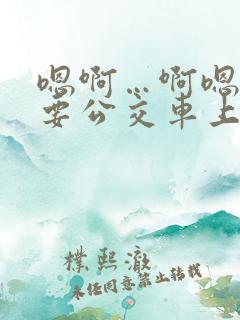 嗯啊…啊嗯
要公交车上
朴熙澈
未经同意禁止转载